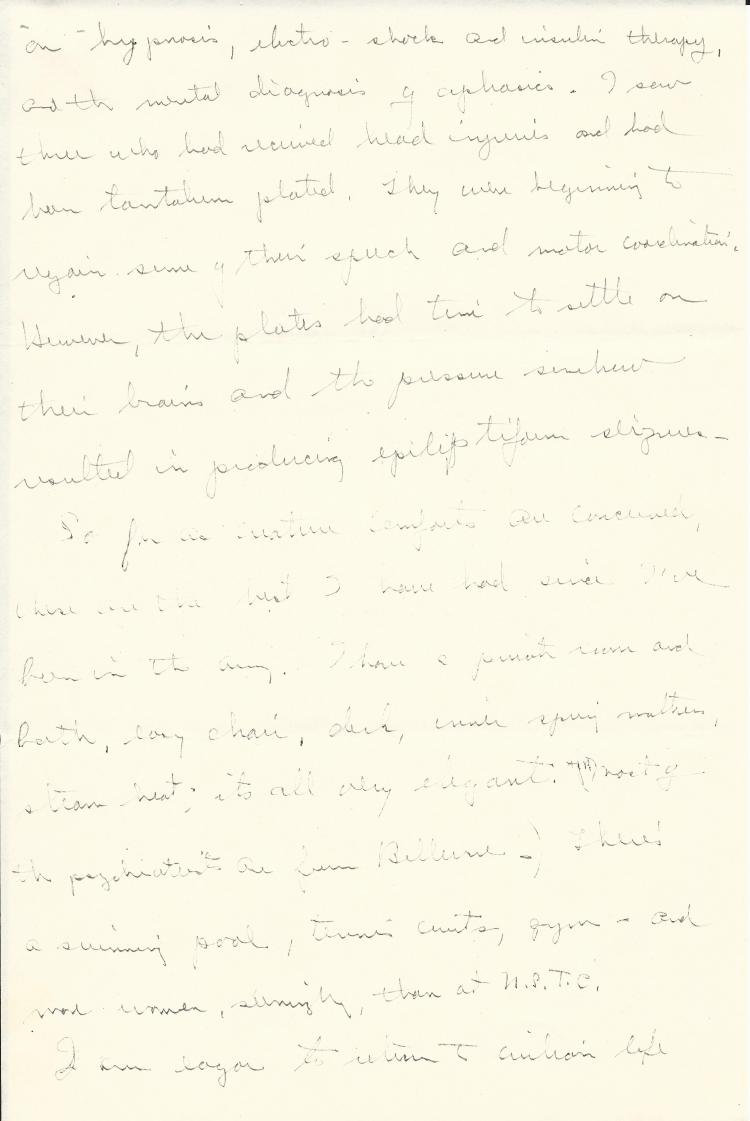 on hypnosis, electro-shock and insulin therapy,
and the mental diagnosis of aphasics. I saw
three who had received head injuries and had
been tantalum plated. They were beginning to
regain some of their speech and motor coordination.
However, the plates had time to settle on
their brains and the pressure somehow
resulted in producing epileptiform seizures -
So far as creature comforts are concerned,
these are the best I have had since I've
been in the army. I have a private room and
bath, easy chair, desk, inner spring mattress,
steam heat; it's all very elegant. (Most of
the psychiatrists are from Bellevue -) There's
a swimming pool, tennis courts, gym - and
more women, seemingly, than at N.S.T.C.
I am eager to return to civilian life